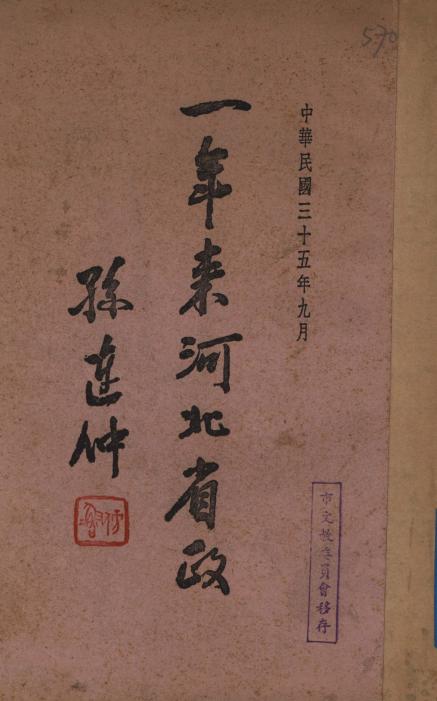 570
中華民國三十五年九月
一年来河北省政
孫連仲
市文教委員會移存